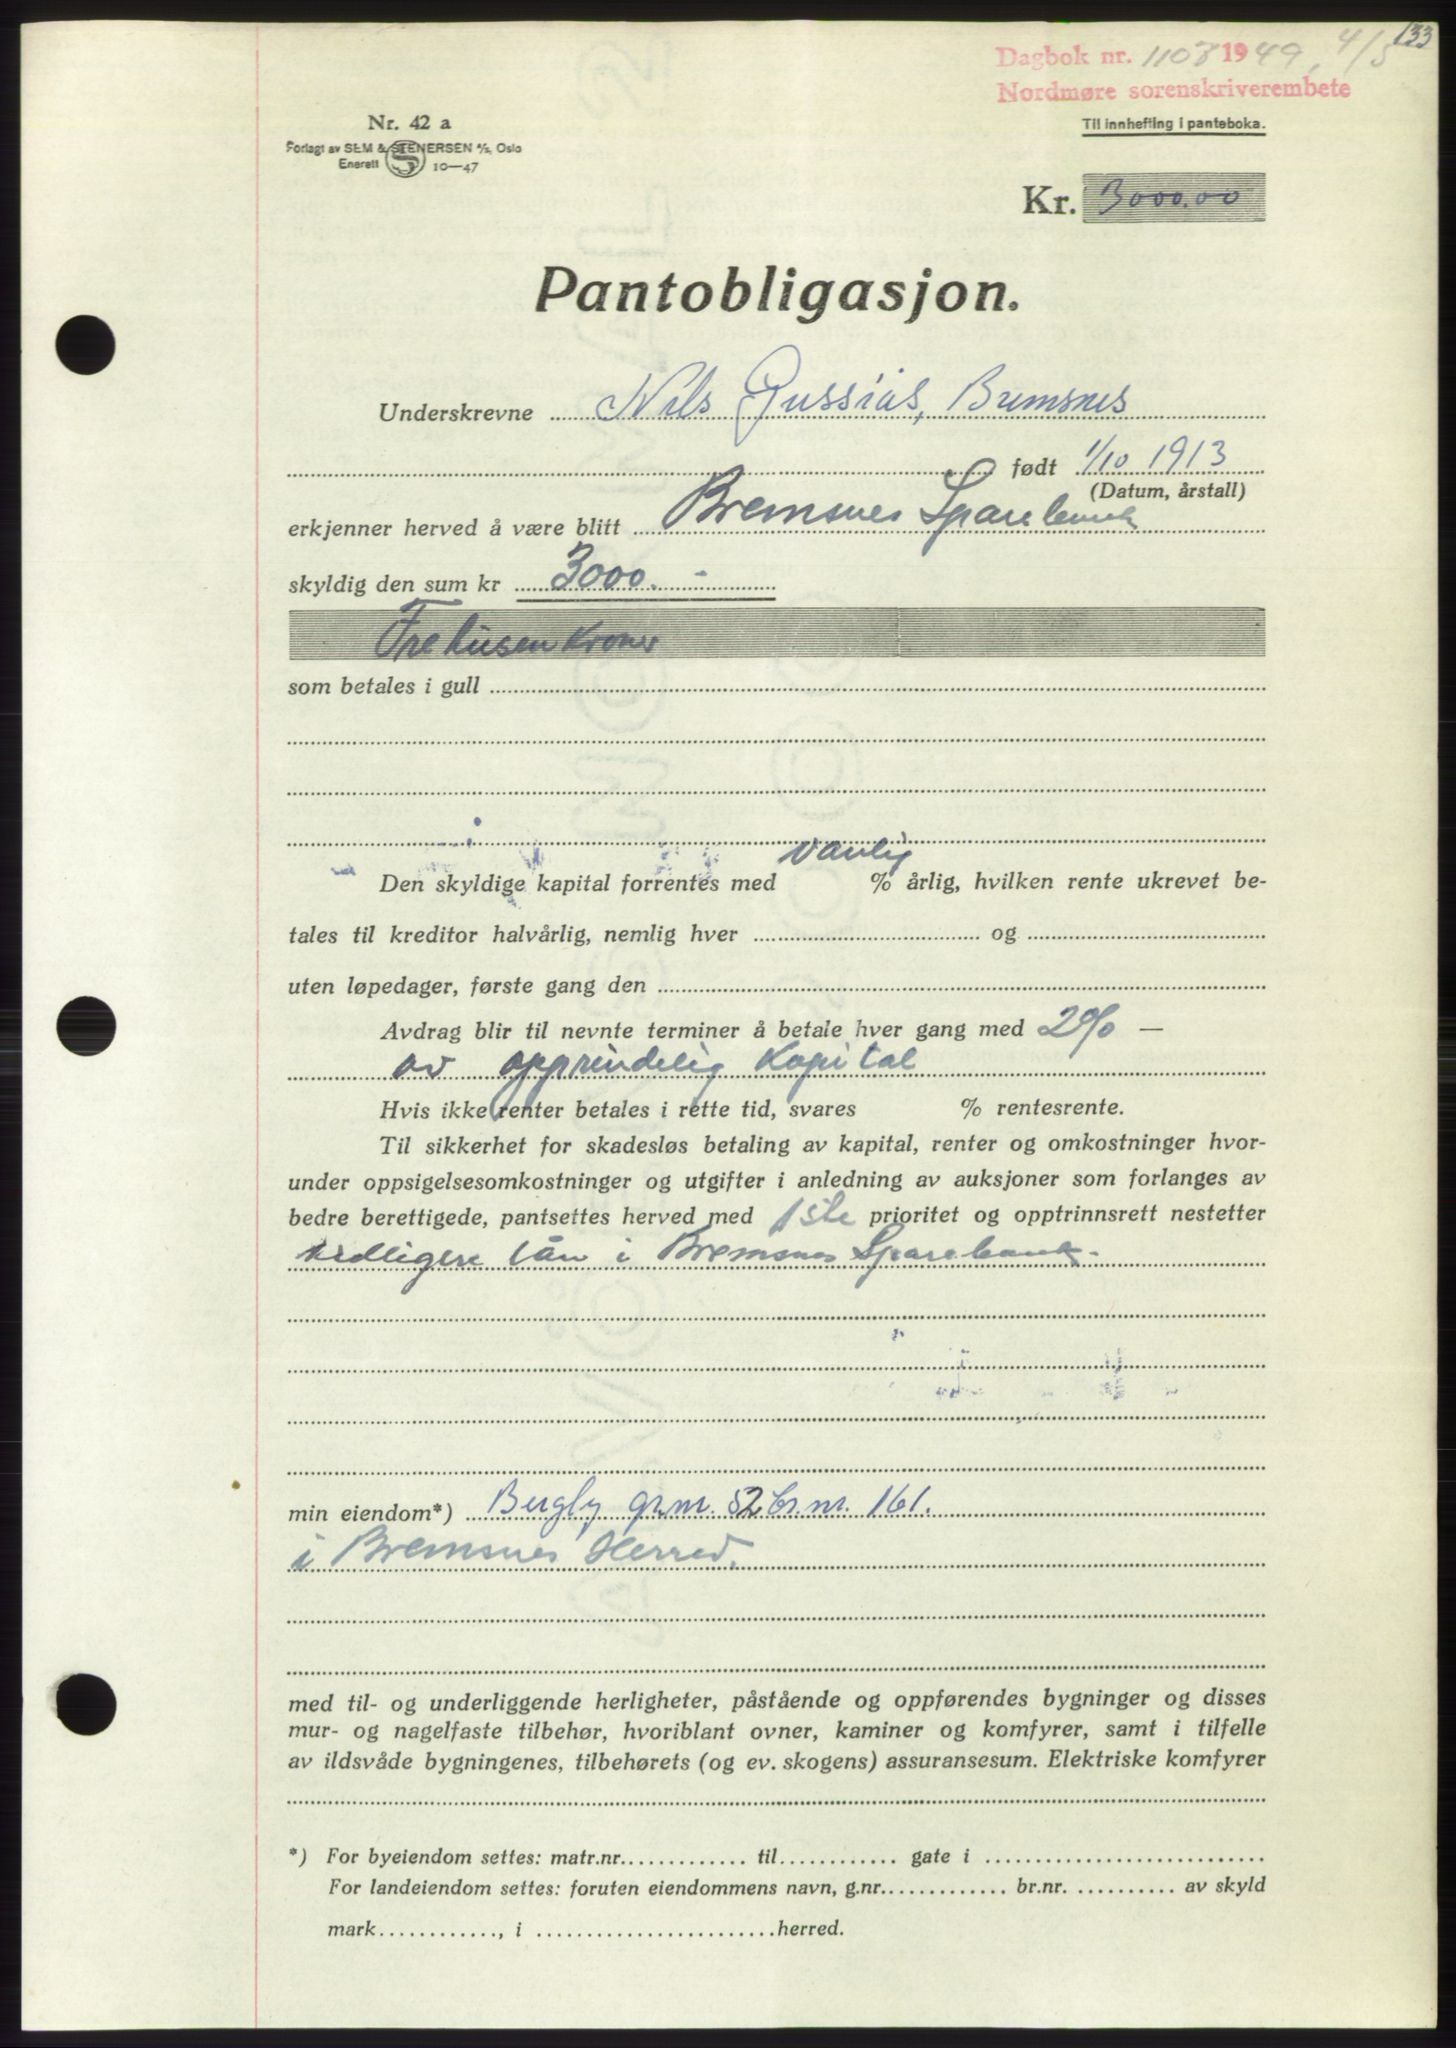 133
Dagbok nr. 1103 1949, 4/5
Nordmøre sorenskriverembete
Til innhefting i panteboka.
Nr. 42 a
Forlagt av SEM & STENERSEN A/S, Oslo
Enerett S 10—47
Kr. 3000.00
Pantobligasjon.
Underskrevne Nils Gussiås, Bremsnes
født 1/10 1913
(Datum, årstall)
erkjenner herved å være blitt Bremsnes Sparebank
skyldig den sum kr 3000.-
Tre tusen kroner
som betales i gull
vanlig
Den skyldige kapital forrentes med % årlig, hvilken rente ukrevet be-
tales til kreditor halvårlig, nemlig hver og
uten løpedager, første gang den
Avdrag blir til nevnte terminer å betale hver gang med 2% —
av opprindelig Kapital
Hvis ikke renter betales i rette tid, svares % rentesrente.
Til sikkerhet for skadesløs betaling av kapital, renter og omkostninger hvor-
under oppsigelsesomkostninger og utgifter i anledning av auksjoner som forlanges av
bedre berettigede, pantsettes herved med 1ste prioritet og opptrinnsrett nestetter
tidligere lån i Bremsnes Sparebank.
min eiendom*) Bergly gr.nr. 52 br.nr. 161.
i Bremsnes Herred.
med til- og underliggende herligheter, påstående og oppførendes bygninger og disses
mur- og nagelfaste tilbehør, hvoriblant ovner, kaminer og komfyrer, samt i tilfelle
av ildsvåde bygningenes, tilbehørets (og ev. skogens) assuransesum. Elektriske komfyrer
*) For byeiendom settes: matr.nr. til gate i
For landeiendom settes: foruten eiendommens navn, g.nr. br.nr. av skyld
mark , i herred.